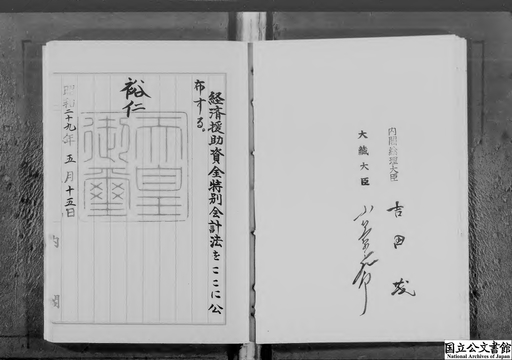 経済援助資金特別会計法をここに公
布する。
裕仁
天皇
御璽
昭和二十九年五月十五日
内閣
内閣総理大臣 吉田茂
大蔵大臣
国立公文書館
National Archives of Japan